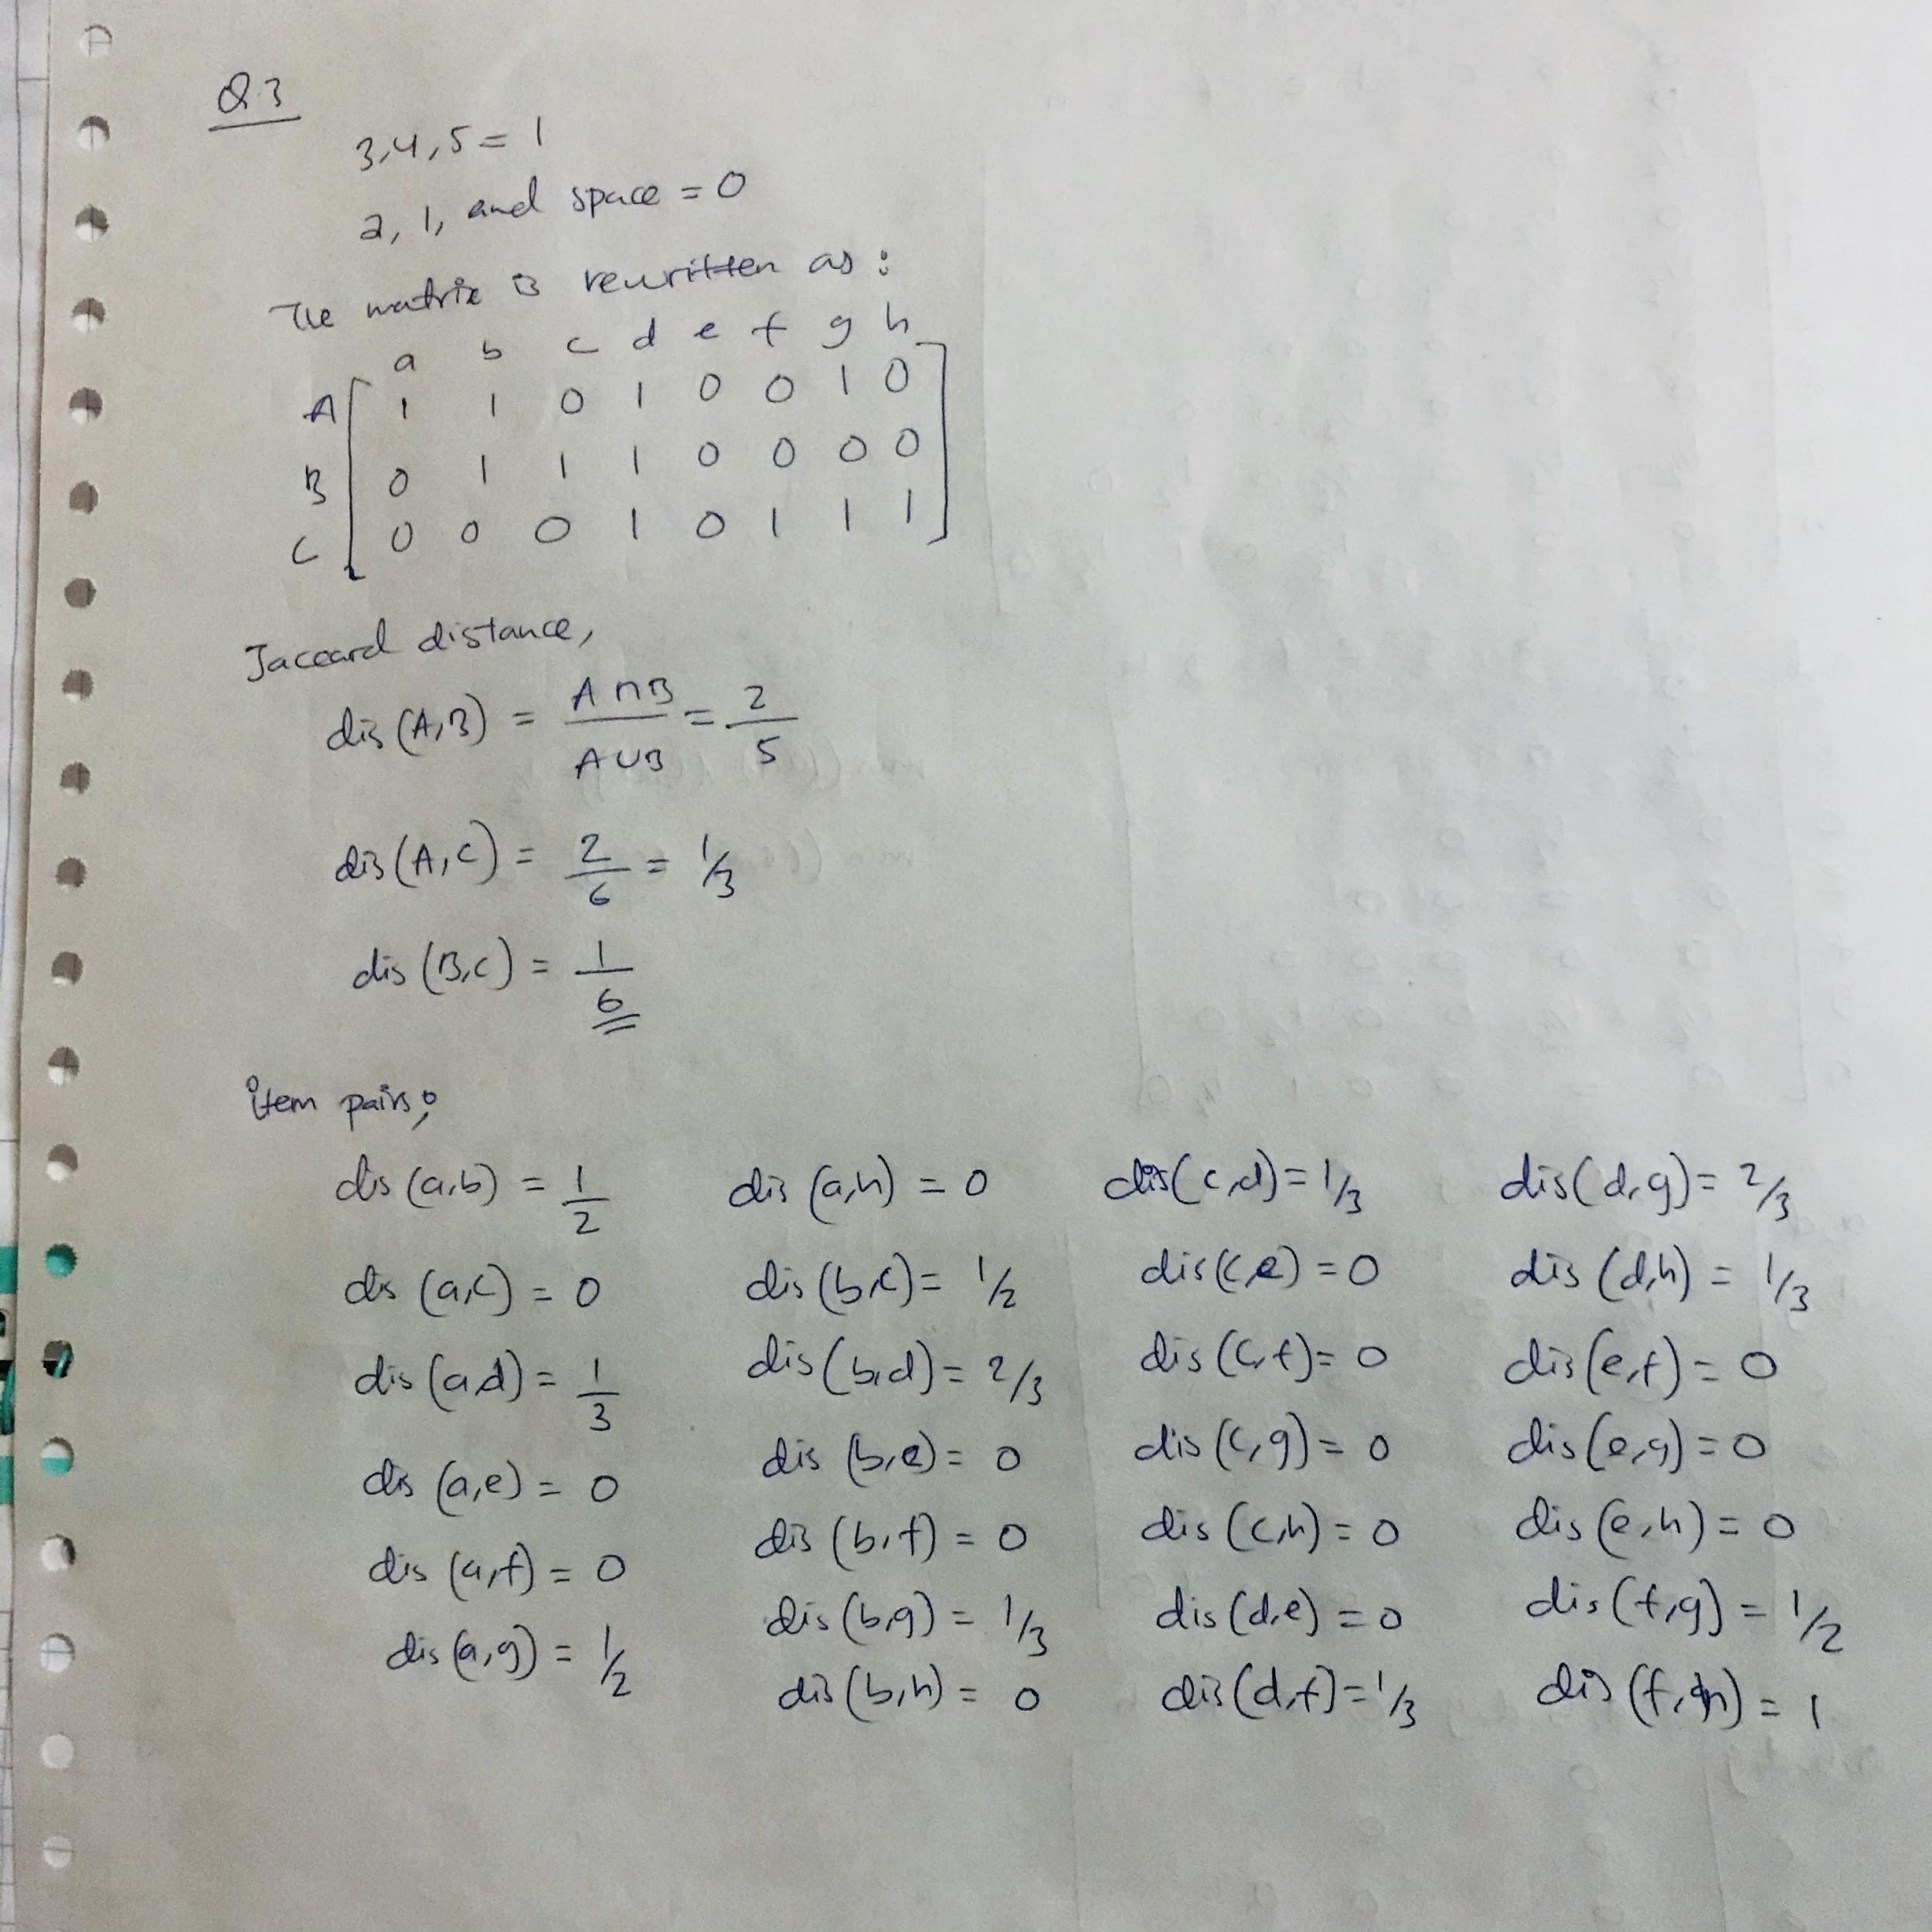 Q.3
3,4,5 = 1
2, 1, and space = 0
The matrix is rewritten as:
a b c d e f g h
A 1 1 0 1 0 0 1 0
B 0 1 1 1 0 0 0 0
C 0 0 0 1 0 1 1 1
Jaccard distance,
dis (A,B) = A∩B / A∪B = 2/5
dis (A,C) = 2/6 = 1/3
dis (B,C) = 1/6
item pairs;
dis (a,b) = 1/2
dis (a,c) = 0
dis (a,d) = 1/3
dis (a,e) = 0
dis (a,f) = 0
dis (a,g) = 1/2
dis (a,h) = 0
dis (b,c) = 1/2
dis (b,d) = 2/3
dis (b,e) = 0
dis (b,f) = 0
dis (b,g) = 1/3
dis (b,h) = 0
dis (c,d) = 1/3
dis (c,e) = 0
dis (c,f) = 0
dis (c,g) = 0
dis (c,h) = 0
dis (d,e) = 0
dis (d,f) = 1/3
dis (d,g) = 2/3
dis (d,h) = 1/3
dis (e,f) = 0
dis (e,g) = 0
dis (e,h) = 0
dis (f,g) = 1/2
dis (f,h) = 1